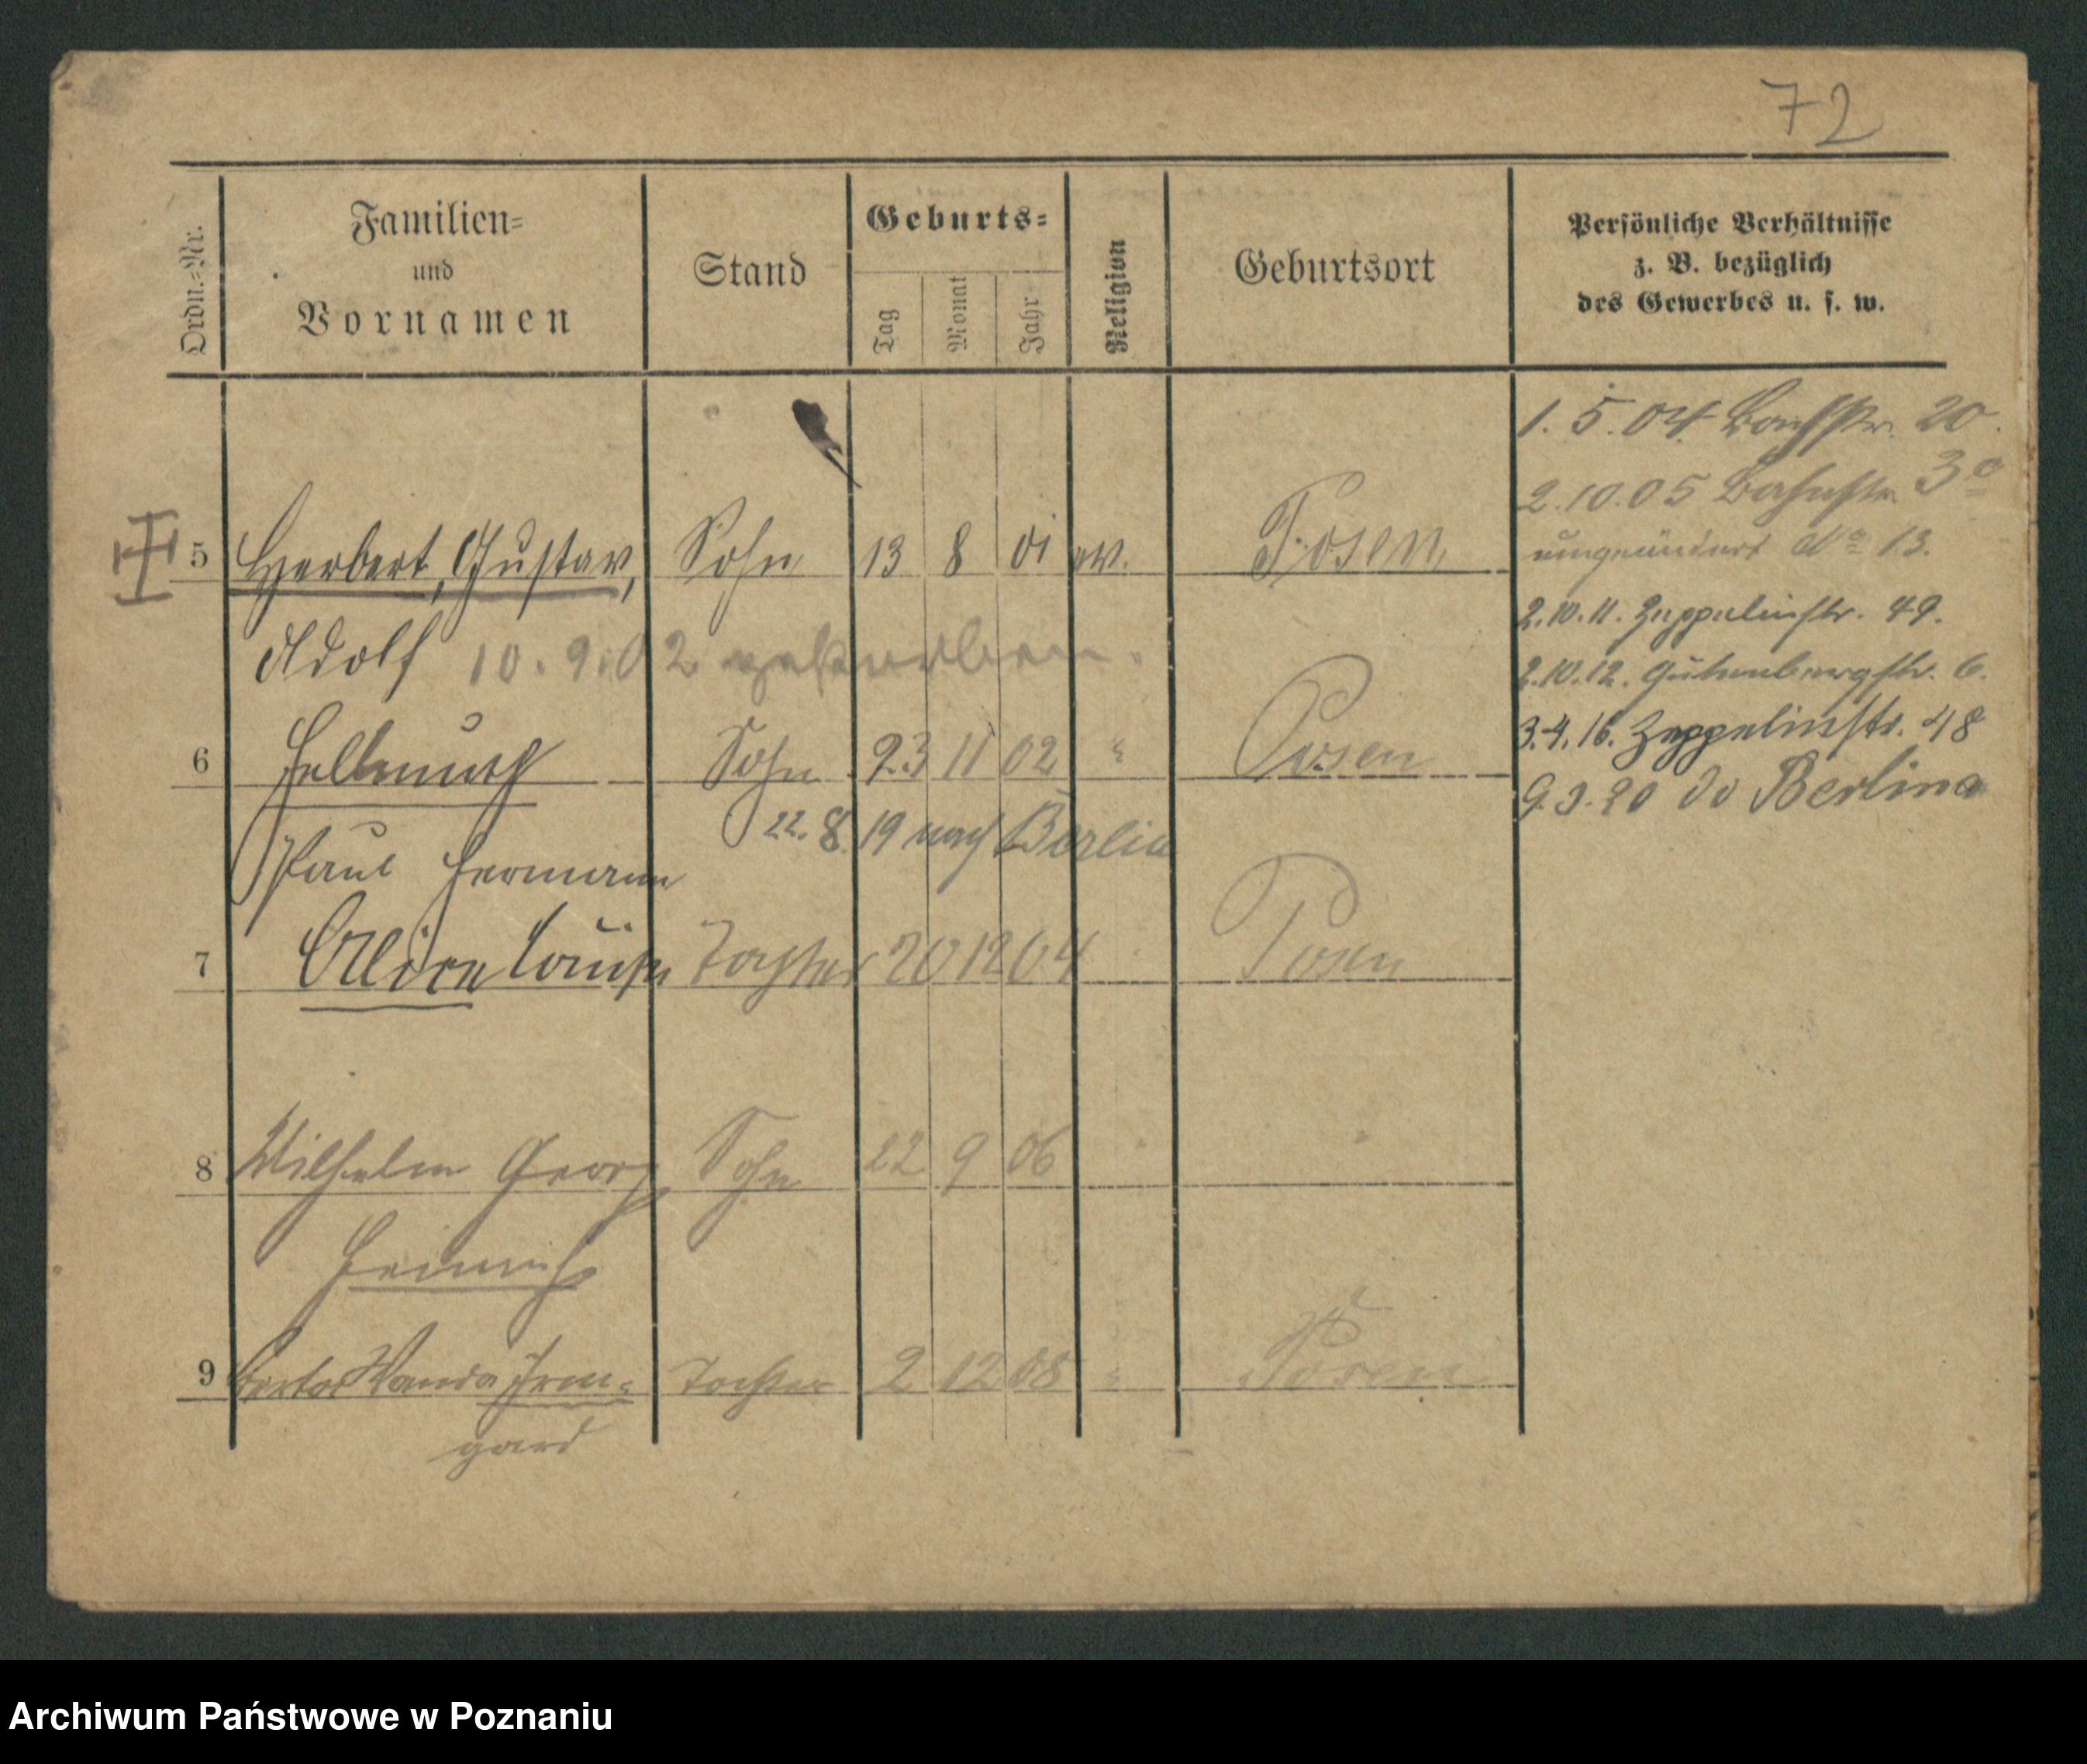 72
Ordn.-Nr.
Familien-
und
Vornamen
Stand
Geburts-
Tag
Monat
Jahr
Religion
Geburtsort
Persönliche Verhältnisse
z. B. bezüglich
des Gewerbes u. s. w.
1. 5. 04. 20.
2. 10. 05 Bahnstr. 30
umgeändert No 13.
2. 10. 11. Zeppelinstr. 49.
2. 10. 12. Gutenbergstr. 6.
3. 4. 16. Zeppelinstr. 48
9. 3. 20 do Berlina
5 Herbert, Gustav, Sohn 13 8 01 ev. Posen
Adolf 10. 9. 02 gestorben.
6 Hellmuth Sohn 23 11 02 " Posen
22. 8. 19 nach Berlin
Paul Hermann
7 Alice Louise Tochter 20 12 04 Posen
8 Wilhelm Georg Sohn 22 9 06 " "
Heinrich
9 Wanda Irm- Tochter 2 12 08 " Posen
gard
Archiwum Państwowe w Poznaniu